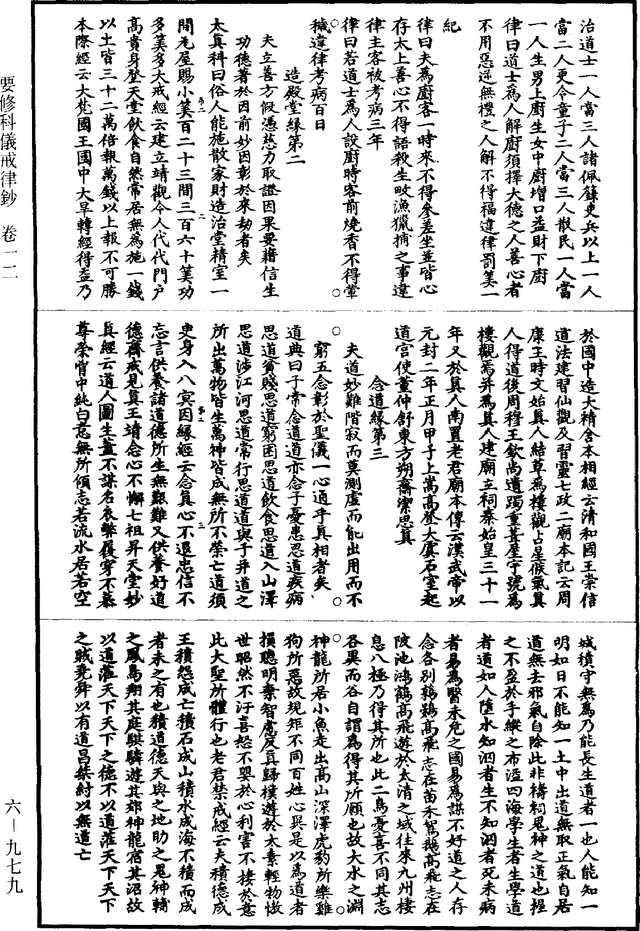 要修科儀戒律鈔 卷一二
六—九七九
治道士一人當三人諸佩籙吏兵以上一人
當二人更令童子二人當三人散民一人當
一人生男上廚生女中廚增口益財下廚
律曰道士為人解廚須擇大德之人善心者
不用惡逆無禮之人解不得福違律罰筭一
紀
律曰夫為廚客一時來不得參差坐並皆心
存太上善心不得語殺生畋漁獵捕之事違
律主客被考病三年
律曰若道士為人設廚時客前燒香不得葷
穢違律考病百日
造殿堂緣第二
夫立善方假憑慈力取證因果要藉信生
功德著於因前妙因彰於來劫者矣
太真科曰俗人能施散家財造治堂精室一
間瓦屋賜小筭百二十三間三百六十筭功
多筭多大戒經云建立靖觀令人代代門戶
高貴身登天堂飲食自然常居無為施一錢
以上皆三十二萬倍報萬錢以上報不可勝
本際經云大梵國王國中大旱轉經得益乃
於國中造大精舍本相經云清和國王崇信
道法建習仙觀及習靈七政二廟本記云周
康王時文始真人結草為樓觀占星候氣真
人得道後周穆王欽尚遺躅重葺屋宇號為
樓觀為幷為真人建廟立祠秦始皇三十一
年又於真人南置老君廟本傳云漢武帝以
元封二年正月甲子上嵩高登大虞石室起
道宮使董仲舒東方朔齋潔思真
念道緣第三
夫道妙難階寂而莫測虛而能出用而不
窮五念彰於聖儀一心通乎真相者矣
道典曰子常念道道亦念子憂患思道疾病
思道貧賤思道窮困思道飲食思道入山澤
思道涉江河思道常行思道道與子幷道之
所出萬物皆生萬神皆成無所不榮亡道須
臾身入八冥因緣經云念真心不退忠信不
忘言供養諸道德所生無艱難又供養好道
德齋戒見真王靖念心不懈七祖昇天堂妙
真經云道人圖生蓋不謀名衣弊履穿不慕
尊榮胷中純白忘無所傾志若流水居若空
城積守無為乃能長生道者一也人能知一
明如日不能知一土中出道無取正氣自居
道無去邪氣自除此非禱祠鬼神之道也揑
之不盈於手縱之布溢四海學生者生學道
者道如人墮水知泅者生不知泅者死未病
者易為醫未危之國易為謀不好道之人存
念各別鶉鷃高飛志在苗禾鴛鵝高飛志在
陂池鴻鶴高飛遊於太清之域往來九州棲
息八極乃得其所也此二鳥憂喜不同其志
各異而各自謂為得其所願也故大水之淵
神龍所居小魚走出高山深澤虎豹所樂雞
狗所惡故規矩不同百姓心異是以為道者
損聰明棄智慮反真歸樸遊於太素輕物傲
世昭然不汙喜怒不嬰於心利害不接於意
此大聖所體行也老君禁戒經云夫積德成
王積怨成亡積石成山積水成海不積而成
者未之有也積道德天與之地助之鬼神輔
之鳳鳥翔其庭騏驎遊其郊神龍宿其沼故
以道蒞天下天下之德不以道蒞天下天下
之賊堯舜以有道昌桀紂以無道亡